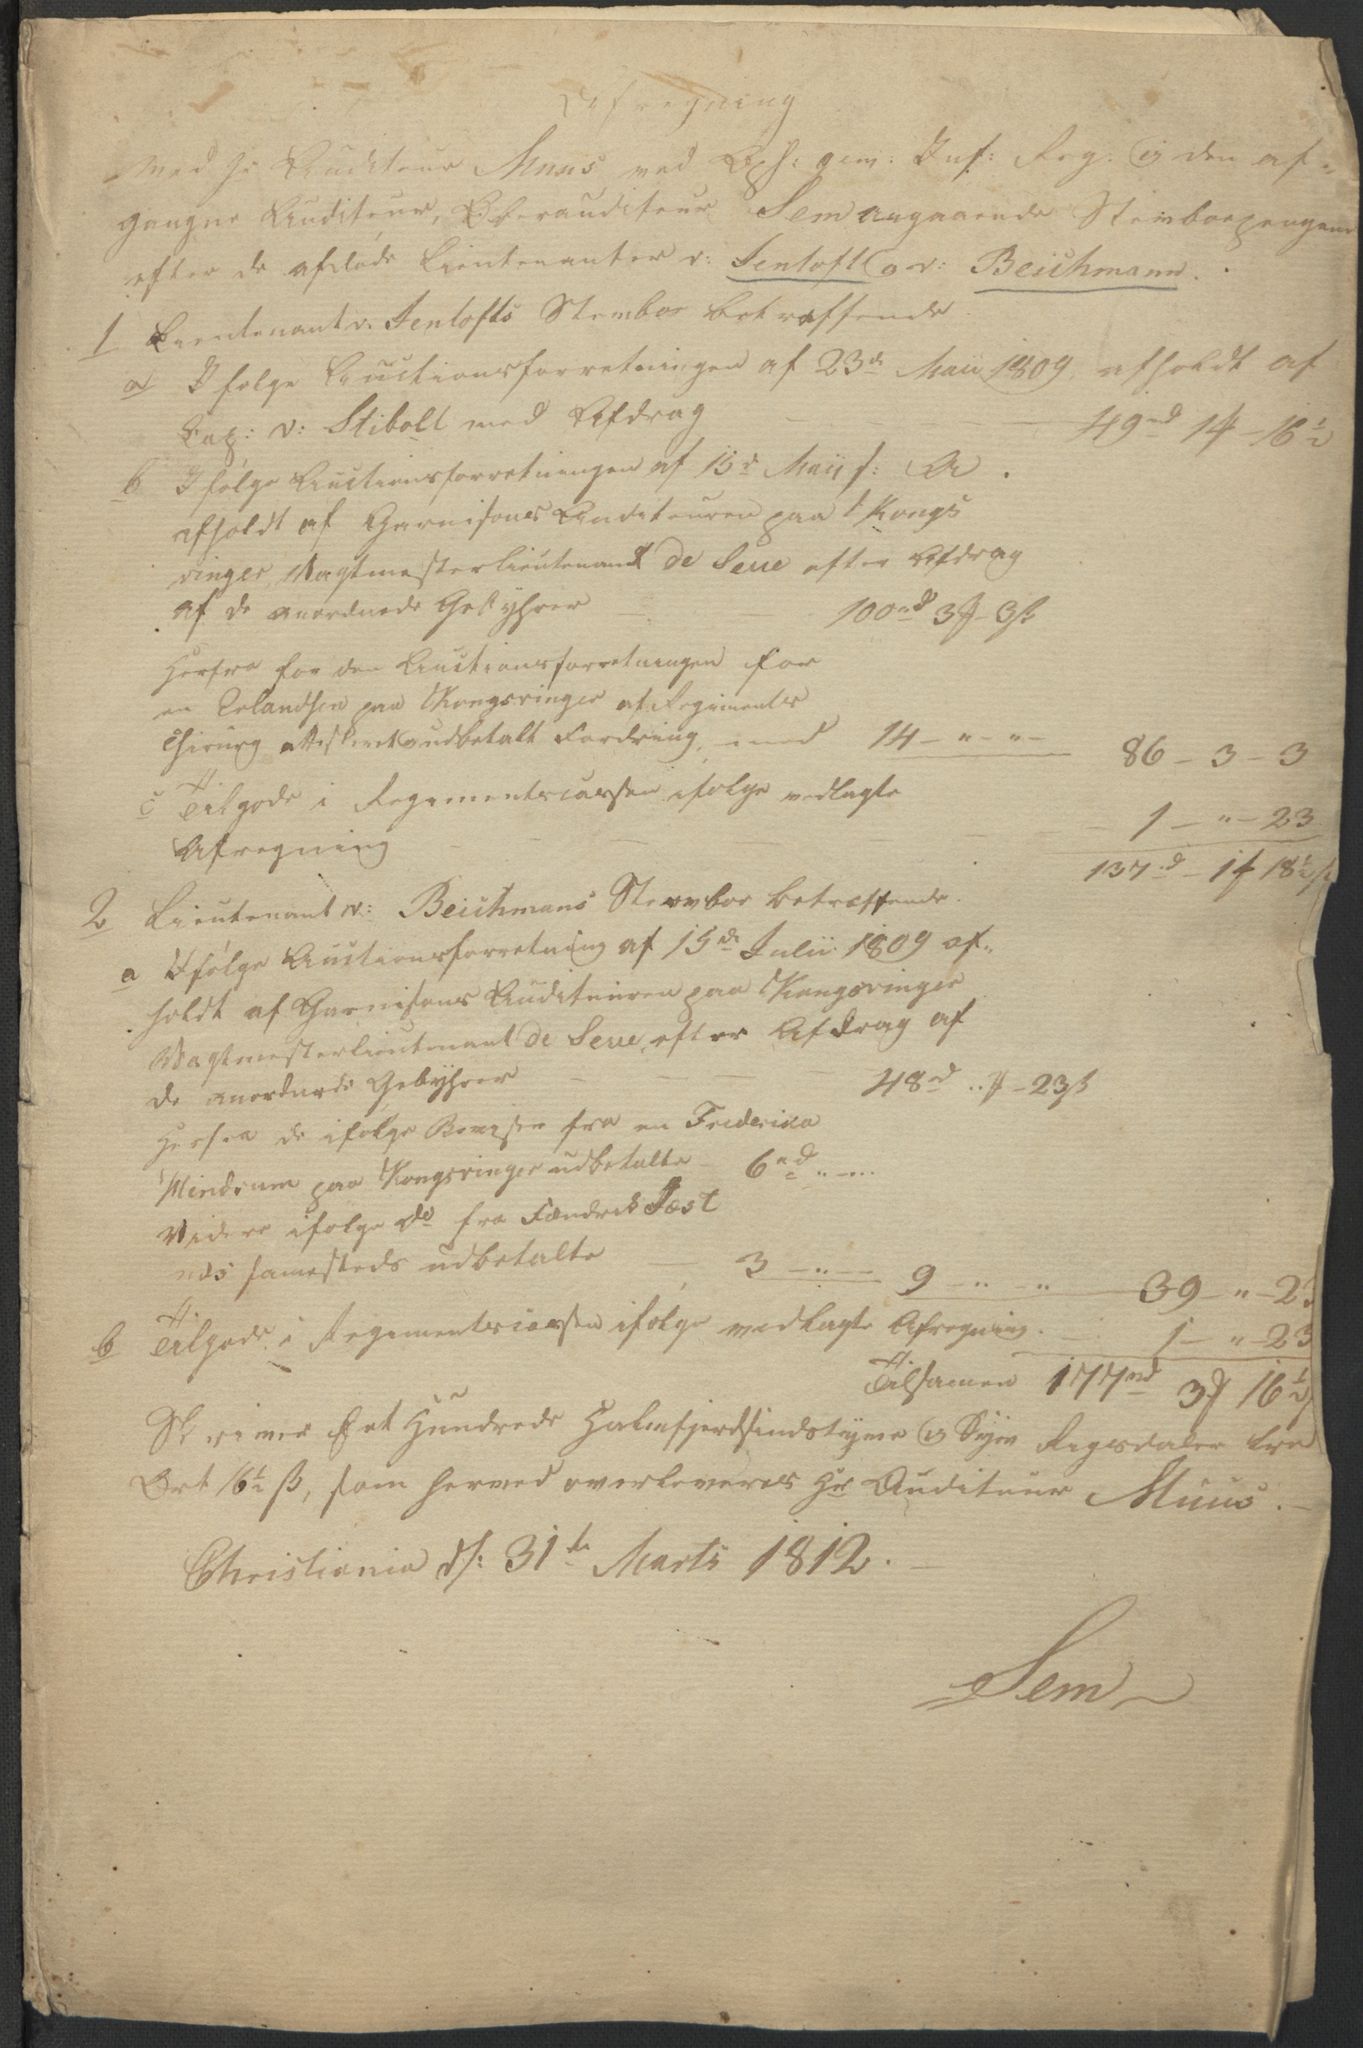 Afregning
med Hr Auditeur Muus ved Oph: gew: Inf: Reg: og den af-
gangne Auditeur, Overauditeur Sem angaaende Sterboepengene
efter de afdøde Lieutenanter v: Jentoft og v: Beichmann.
1 Lieutenant v: Jentofts Sterboe betræffende
a Ifølge Auctionsforretningen af 23de Maii 1809 afholdt af
Cap: v: Stibolt med Afdrag — 49rd 1 – 16½
b Ifølge Auctionsforretningen af 15de Maii s: A.
afholdt af Garnisons Auditeuren paa Kongs
vinger, Vagtmesterlieutenant de Seue efter Afdrag
af de anordnede Gebyhrer — 100rd 3 – 3ß
Herfra for den Auctionsforretningen for
en Erlandsen paa Kongsvinger af Regiments
Chirurg attesteret udbetalt Fordring, med 14 – " – " – 86 – 3 – 3
c Tilgode i Regimentscassen ifølge vedlagte
Afregning — 1 – " – 23
137rd – 1 18½ß
2 Lieutenant v: Beichmans Sterboe betræffende.
a Ifølge Auctionsforretning af 15de Julii 1809 af-
holdt af Garnisons Auditeuren paa Kongsvinger
Vagtmesterlieutenant de Seue, efter Afdrag af
de anordnede Gebyhrer — 48rd " – 23ß
Herfra de ifølge Beviser fra en Friderica
Mindrum paa Kongsvinger udbetalte 6rd " – "
Videre ifølge do fra Fændrik Tost
nds sammesteds udbetalte — 3 – " – 9 – " – " 39 – " – 23
b Tilgode i Regimentscassen ifølge vedlagte Afregning. — 1 – " – 23
Tilsamen 177rd 3 16½
Skriver Eet Hundrede Halvfjerdsindstyve og Syv Rigsdaler tre
Ort 16½ ß, som herved overleveres Hr Auditeur Muus. –
Christiania d: 31te Marts 1812.
Sem